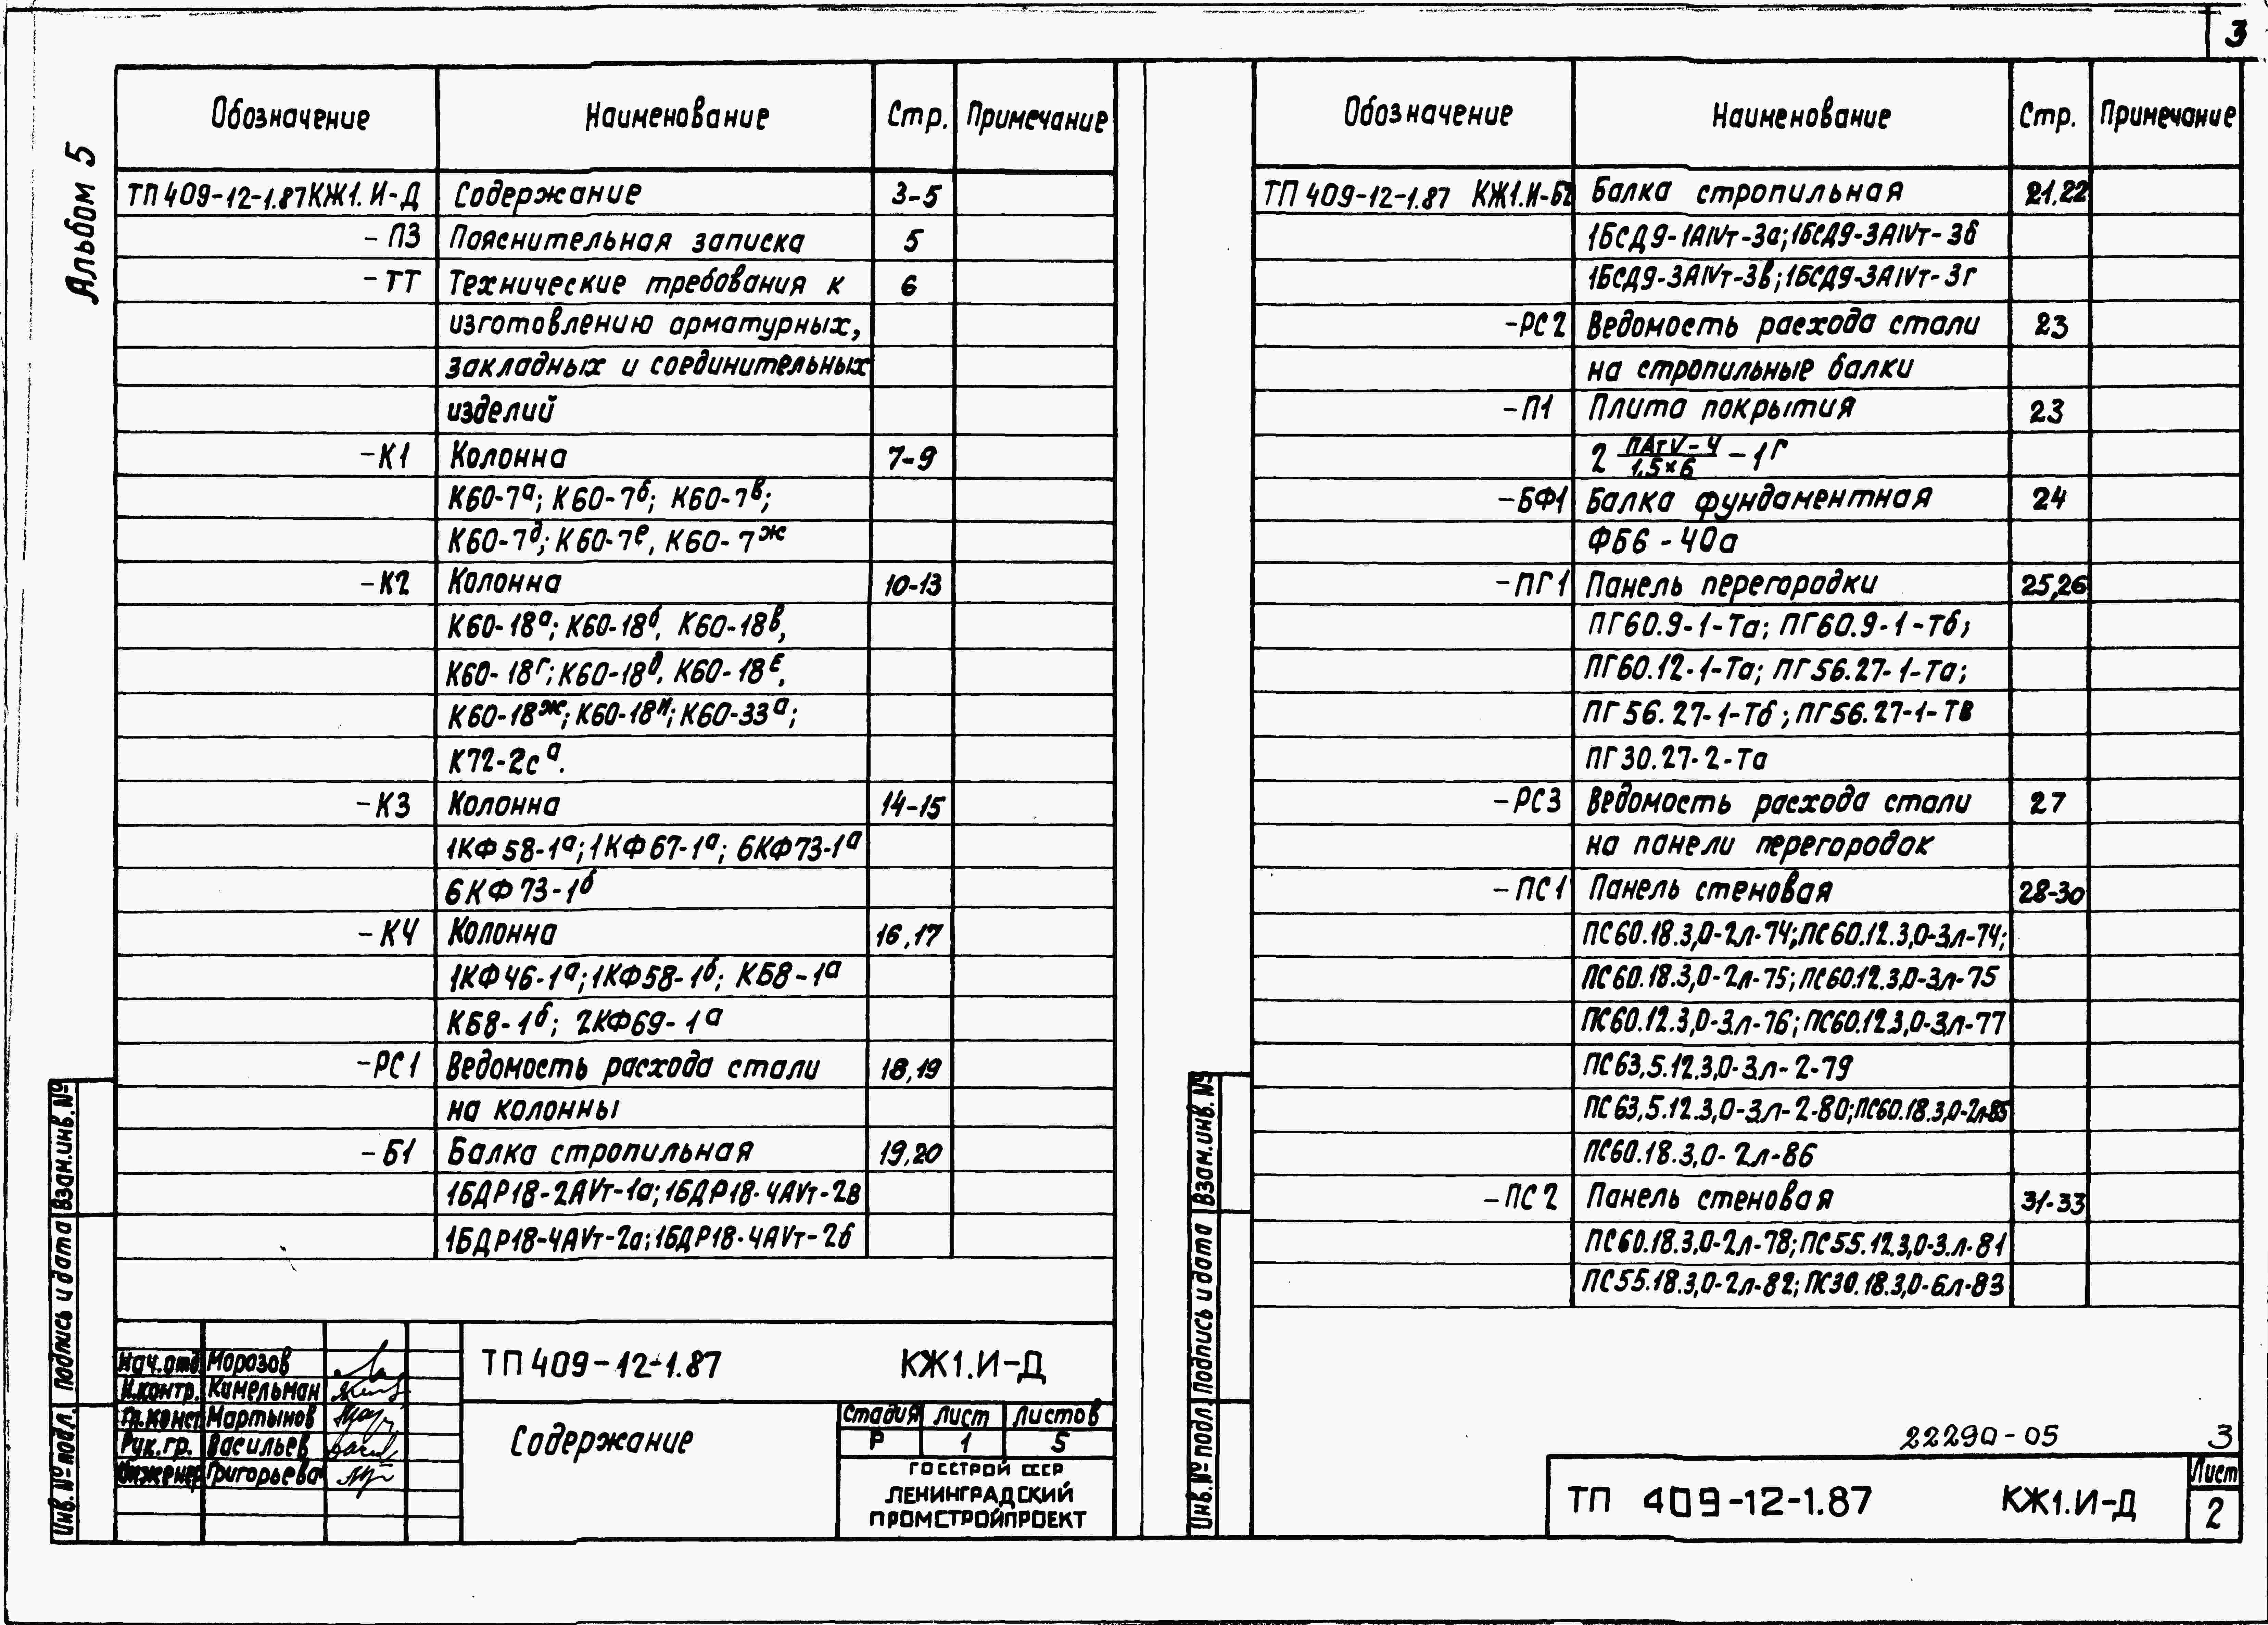 3
Альбом 5
Обозначение Наименование Стр. Примечание
ТП 409-12-1.87 КЖ1.И-Д Содержание 3-5
-ПЗ Пояснительная записка 5
-ТТ Технические требования к 6
изготовлению арматурных,
закладных и соединительных
изделий
-К1 Колонна 7-9
К60-7а; К60-7б; К60-7в;
К60-7д; К60-7е, К60-7ж
-К2 Колонна 10-13
К60-18а; К60-18б, К60-18в,
К60-18г; К60-18д, К60-18Е,
К60-18ж; К60-18и; К60-33а;
К72-2са.
-К3 Колонна 14-15
1КФ58-1а; 1КФ67-1а; 6КФ73-1а
6КФ73-1б
-К4 Колонна 16,17
1КФ46-1а; 1КФ58-1б; КБ8-1а
КБ8-1б; 2КФ69-1а
-РС1 Ведомость расхода стали 18,19
на колонны
-Б1 Балка стропильная 19,20
1БДР18-2АVт-1а; 1БДР18-4АVт-2в
1БДР18-4АVт-2а; 1БДР18-4АVт-2б
Нач.отд. Морозов
Н.контр. Кимельман
Гл.конст Мартынов
Рук.гр. Васильев
Инженер Григорьева
ТП 409-12-1.87 КЖ1.И-Д
Содержание
Стадия Лист Листов
Р 1 5
ГОССТРОЙ СССР
ЛЕНИНГРАДСКИЙ
ПРОМСТРОЙПРОЕКТ
Инв.№ подл. Подпись и дата Взам.инв.№
Обозначение Наименование Стр. Примечание
ТП 409-12-1.87 КЖ1.И-Б2 Балка стропильная 21,22
1БСД9-1АIVт-3а; 1БСД9-3АIVт-3б
1БСД9-3АIVт-3в; 1БСД9-3АIVт-3г
-РС2 Ведомость расхода стали 23
на стропильные балки
-П1 Плита покрытия 23
2 ПАтV-4/1,5×6 -1г
-БФ1 Балка фундаментная 24
ФБ6-40а
-ПГ1 Панель перегородки 25,26
ПГ60.9-1-Та; ПГ60.9-1-Тб;
ПГ60.12-1-Та; ПГ56.27-1-Та;
ПГ56.27-1-Тб; ПГ56.27-1-Тв
ПГ30.27-2-Та
-РС3 Ведомость расхода стали 27
на панели перегородок
-ПС1 Панель стеновая 28-30
ПС60.18.3,0-2л-74; ПС60.12.3,0-3л-74;
ПС60.18.3,0-2л-75; ПС60.12.3,0-3л-75
ПС60.12.3,0-3л-76; ПС60.12.3,0-3л-77
ПС63,5.12.3,0-3л-2-79
ПС63,5.12.3,0-3л-2-80; ПС60.18.3,0-2л-85
ПС60.18.3,0-2л-86
-ПС2 Панель стеновая 31-33
ПС60.18.3,0-2л-78; ПС55.12.3,0-3.л-81
ПС55.18.3,0-2л-82; ПС30.18.3,0-6л-83
22290-05 3
ТП 409-12-1.87 КЖ1.И-Д
Лист
2
Инв.№ подл. Подпись и дата Взам.инв.№